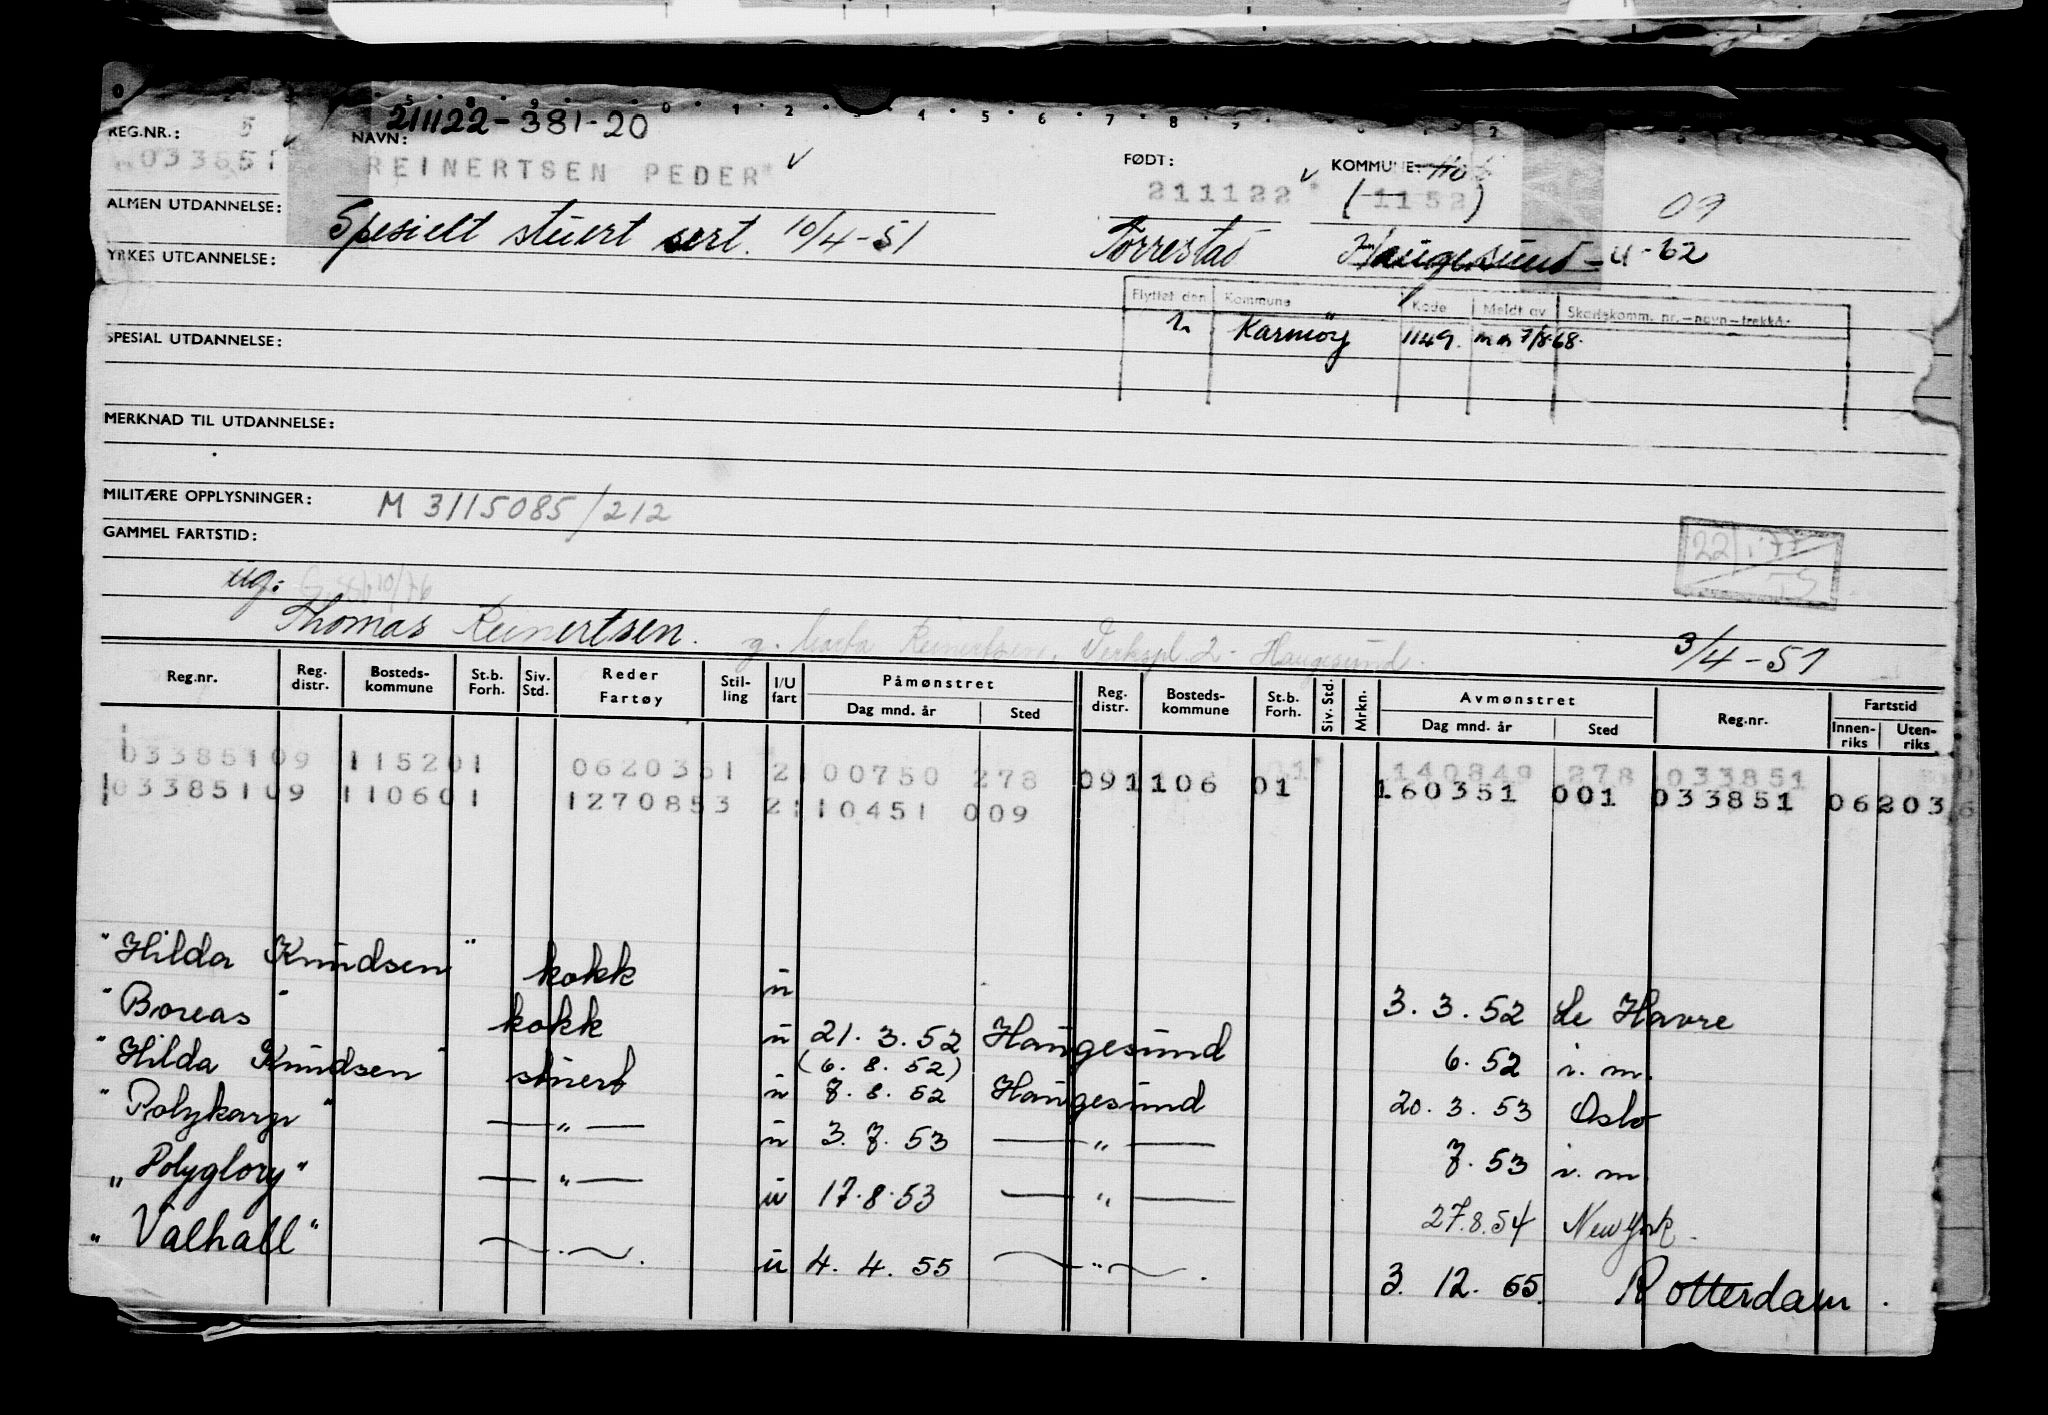 211122-381-20
REG.NR.: 5 NAVN: FØDT: KOMMUNE: 1106
033851 REINERTSEN PEDER 211122 (1152) 09
ALMEN UTDANNELSE: Spesielt stuert sert. 10/4-51 Torrestad Haugesund -4-62
YRKES UTDANNELSE:
Flyttet den Kommune Kode Meldt av Skattekomm. nr.-navn-trekkå.
Karmøy 1149. 7/8-68.
SPESIAL UTDANNELSE:
MERKNAD TIL UTDANNELSE:
MILITÆRE OPPLYSNINGER: M 3115085/212
GAMMEL FARTSTID:
22/1-77
ug: 10/76
Thomas Reinertsen. g. Marta Reinertsen, Verkspl. 2 - Haugesund. 3/4-51
Reg.nr. Reg. distr. Bosteds- kommune St.b. Forh. Siv. Std. Reder Fartøy Stil- ling I/U fart Påmønstret Dag mnd. år Sted Reg. distr. Bosteds- kommune St.b. Forh. Siv. Std. Mrkn. Avmønstret Dag mnd. år Sted Reg.nr. Fartstid Innen- riks Uten- riks
03385109 115201 0620351 2 00750 278 140849 278 033851
03385109 110601 1270853 2 110451 009 091106 01 160351 001 033851 06203
"Hilda Knudsen" kokk u 3. 3. 52 Le Havre
"Boreas" kokk u 21. 3. 52 Haugesund 6. 52 i. m.
(6. 8. 52)
"Hilda Knudsen" stuert u 7. 8. 52 Haugesund 20. 3. 53 Oslo
"Polykarp" — " — u 3. 7. 53 — " — 7. 53 i. m.
"Polyglory" — " — u 17. 8. 53 — " — 27. 8. 54 New York.
"Valhall" — " — u 4. 4. 55 — " — 3. 12. 55. Rotterdam.